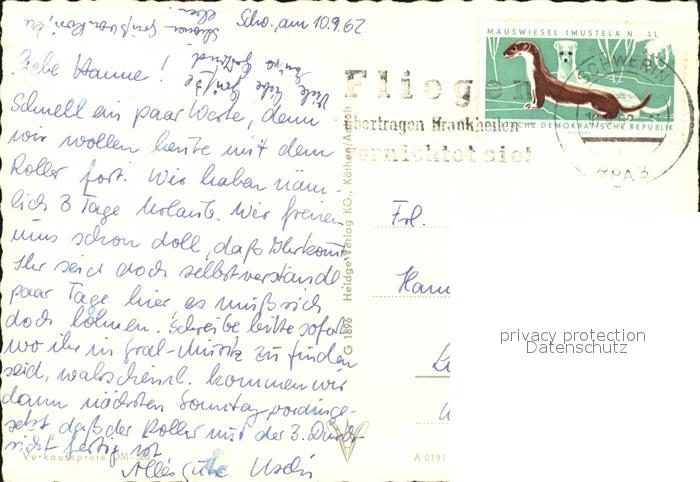 Scho., am 10.9.62
Liebe Hanne!
Schnell ein paar Worte, denn
wir wollen heute mit dem
Roller fort. Wir haben näm-
lich 3 Tage Urlaub. Wir freuen
uns schon doll, daß Ihr kommt
Ihr seid doch selbstverständl
paar Tage hier es muß sich
doch lohnen. Schreibe bitte sofort
wo ihr in Graal-Müritz zu finden
seid, wahrscheinl. kommen wir
dann nächsten Sonntag vorausge-
setzt daß der Roller mit der 3. Durch
sicht fertig ist
Alles Gute Uschi
Viele liebe Grüße
Verkaufspreis DM -,20
G 1896 Heldge-Verlag KG., Köthen/Anhalt
A 0191
MAUSWIESEL (MUSTELA N AL
CHE DEMOKRATISCHE REPUBLIK
SCHWERIN
Fliegen
übertragen Krankheiten
vernichtet sie!
Frl.
Hann
privacy protection
Datenschutz